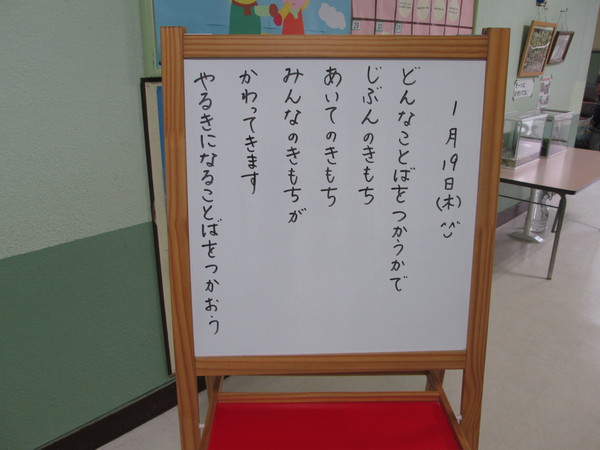 1月19日(木)^^
どんなことばをつかうかで
じぶんのきもち
あいてのきもち
みんなのきもちが
かわってきます
やるきになることばをつかおう